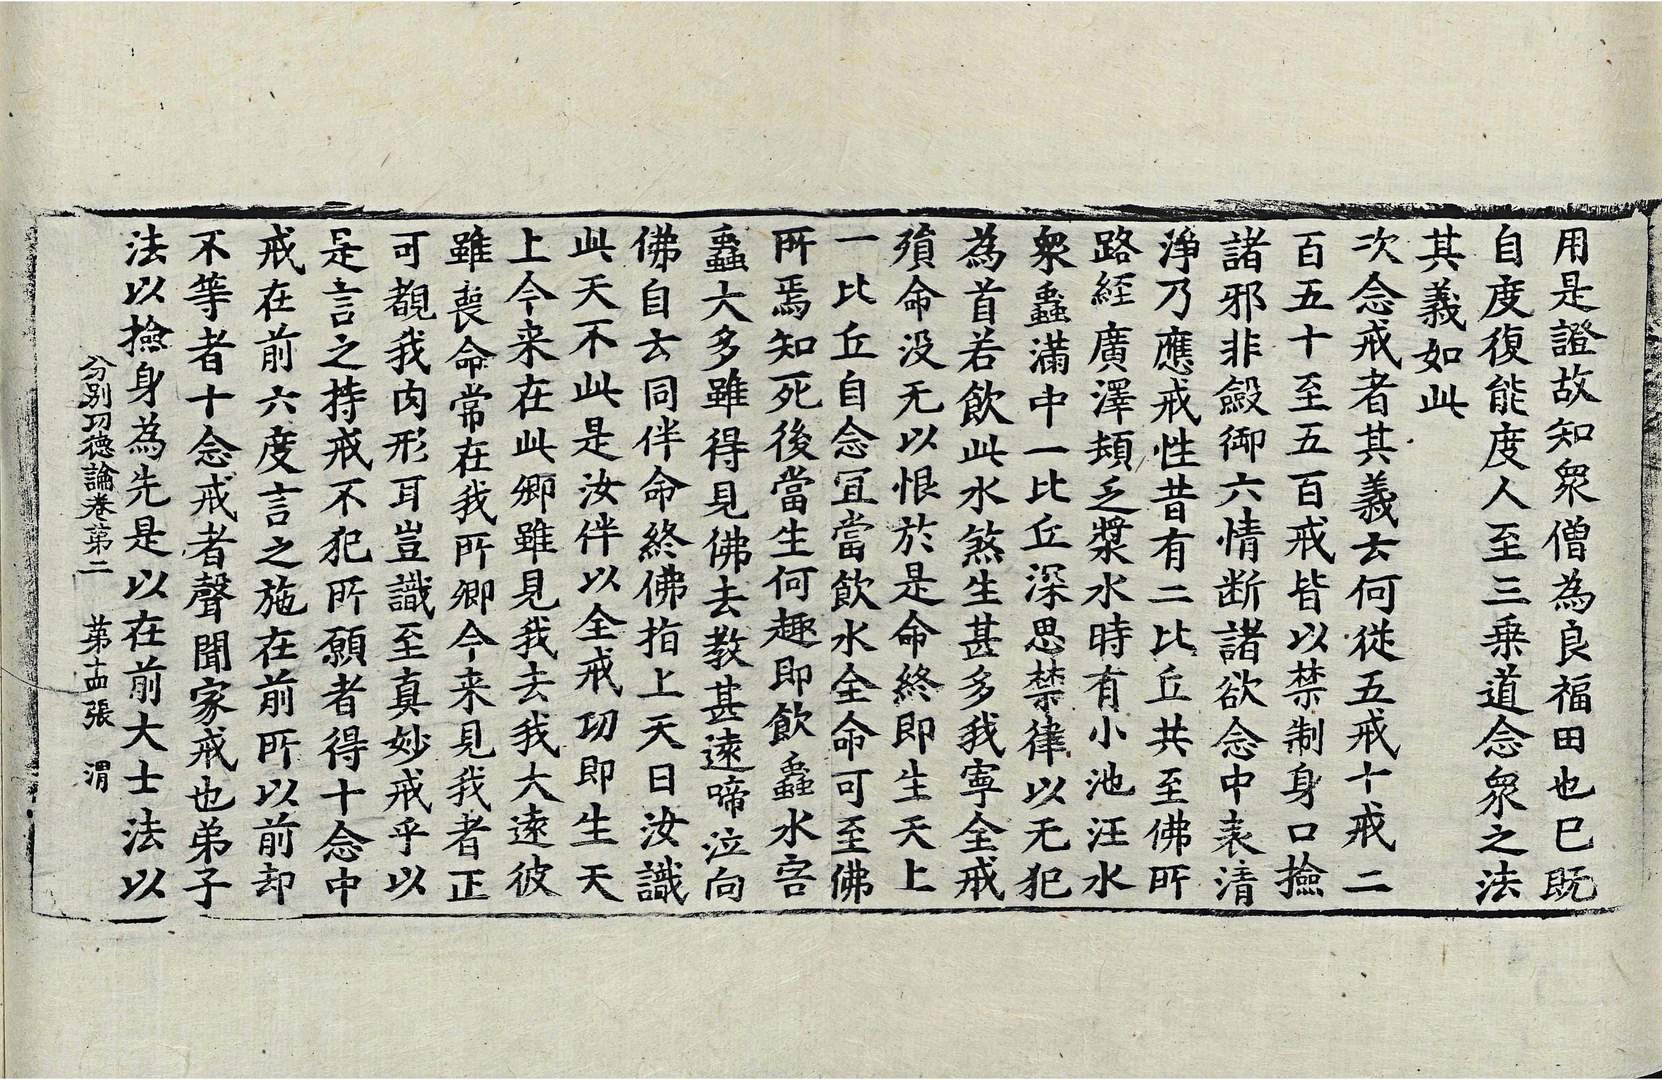 用是證故知衆僧為良福田也巳既
自度復能度人至三乗道念衆之法
其義如此
次念戒者其義云何従五戒十戒二
百五十至五百戒皆以禁制身口撿
諸邪非斂御六情断諸欲念中表清
淨乃應戒性昔有二比丘共至佛所
路經廣澤頓乏漿水時有小池汪水
衆蟲滿中一比丘深思禁律以无犯
為首若飲此水煞生甚多我寧全戒
殞命没无以恨於是命終即生天上
一比丘自念冝當飲水全命可至佛
所焉知死後當生何趣即飲蟲水害
蟲大多雖得見佛去教甚遠啼泣向
佛自云同伴命終佛指上天曰汝識
此天不此是汝伴以全戒功即生天
上今来在此卿雖見我去我大遠彼
雖喪命常在我所卿今来見我者正
可覩我肉形耳豈識至真妙戒乎以
是言之持戒不犯所願者得十念中
戒在前六度言之施在前所以前却
不等者十念戒者聲聞家戒也弟子
法以撿身為先是以在前大士法以
分別功德論卷第二　第十四張　渭